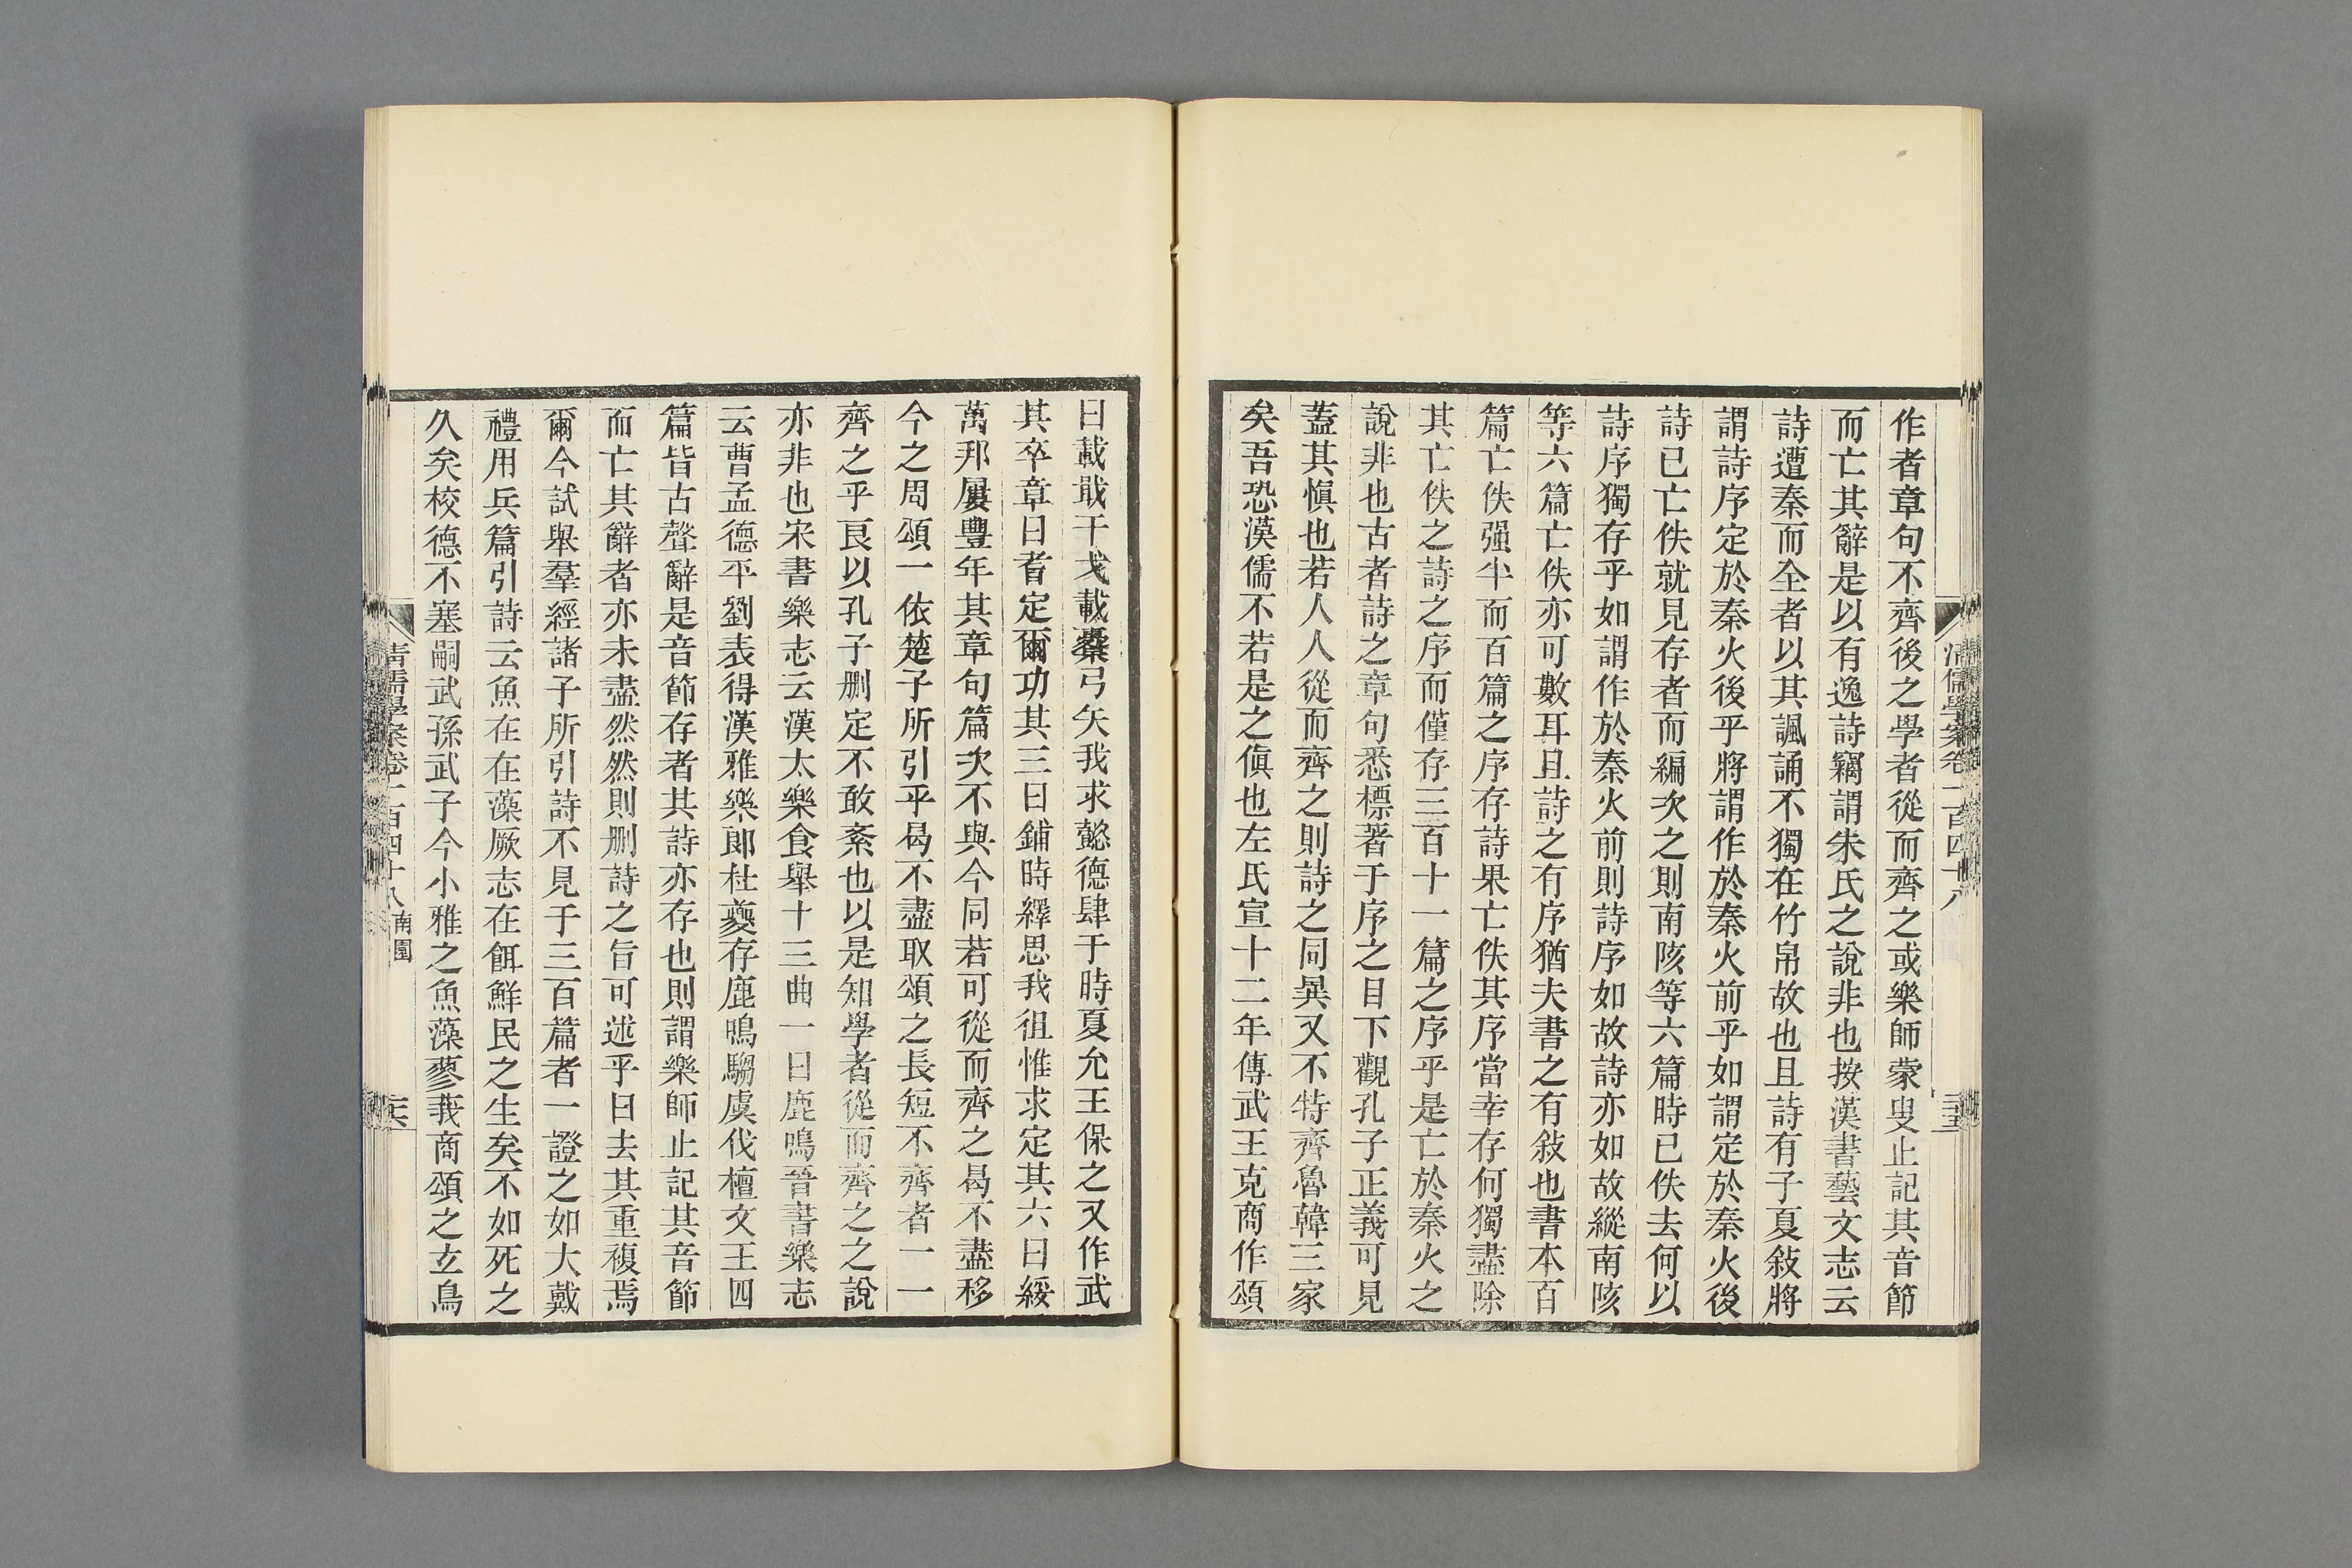 清儒學案卷一百四十八
作者章句不齊後之學者從而齊之或樂師蒙叟止記其音節
而亡其辭是以有逸詩竊謂朱氏之說非也按漢書藝文志云
詩遭秦而全者以其諷誦不獨在竹帛故也且詩有子夏敍將
謂詩序定於秦火後乎將謂作於秦火前乎如謂定於秦火後
詩已亡佚就見存者而編次之則南陔等六篇時已佚去何以
詩序獨存乎如謂作於秦火前則詩序如故詩亦如故縱南陔
等六篇亡佚亦可數耳且詩之有序猶夫書之有敍也書本百
篇亡佚强半而百篇之序存詩果亡佚其序當幸存何獨盡除
其亡佚之詩之序而僅存三百十一篇之序乎是亡於秦火之
說非也古者詩之章句悉標著于序之目下觀孔子正義可見
蓋其愼也若人人從而齊之則詩之同異又不特齊魯韓三家
矣吾恐漢儒不若是之傎也左氏宣十二年傳武王克商作頌
曰載戢干戈載櫜弓矢我求懿德肆于時夏允王保之又作武
其卒章曰耆定爾功其三曰鋪時繹思我徂惟求定其六曰綏
萬邦屢豐年其章句篇次不與今同若可從而齊之曷不盡移
今之周頌一依楚子所引乎曷不盡取頌之長短不齊者一一
齊之乎良以孔子刪定不敢紊也以是知學者從而齊之之說
亦非也宋書樂志云漢太樂食舉十三曲一曰鹿鳴晉書樂志
云曹孟德平劉表得漢雅樂郎杜夔存鹿鳴騶虞伐檀文王四
篇皆古聲辭是音節存者其詩亦存也則謂樂師止記其音節
而亡其辭者亦未盡然然則刪詩之旨可述乎曰去其重複焉
爾今試舉羣經諸子所引詩不見于三百篇者一證之如大戴
禮用兵篇引詩云魚在在藻厥志在餌鮮民之生矣不如死之
久矣校德不塞嗣武孫武子今小雅之魚藻蓼莪商頌之玄鳥
清儒學案卷一百四十八 南園